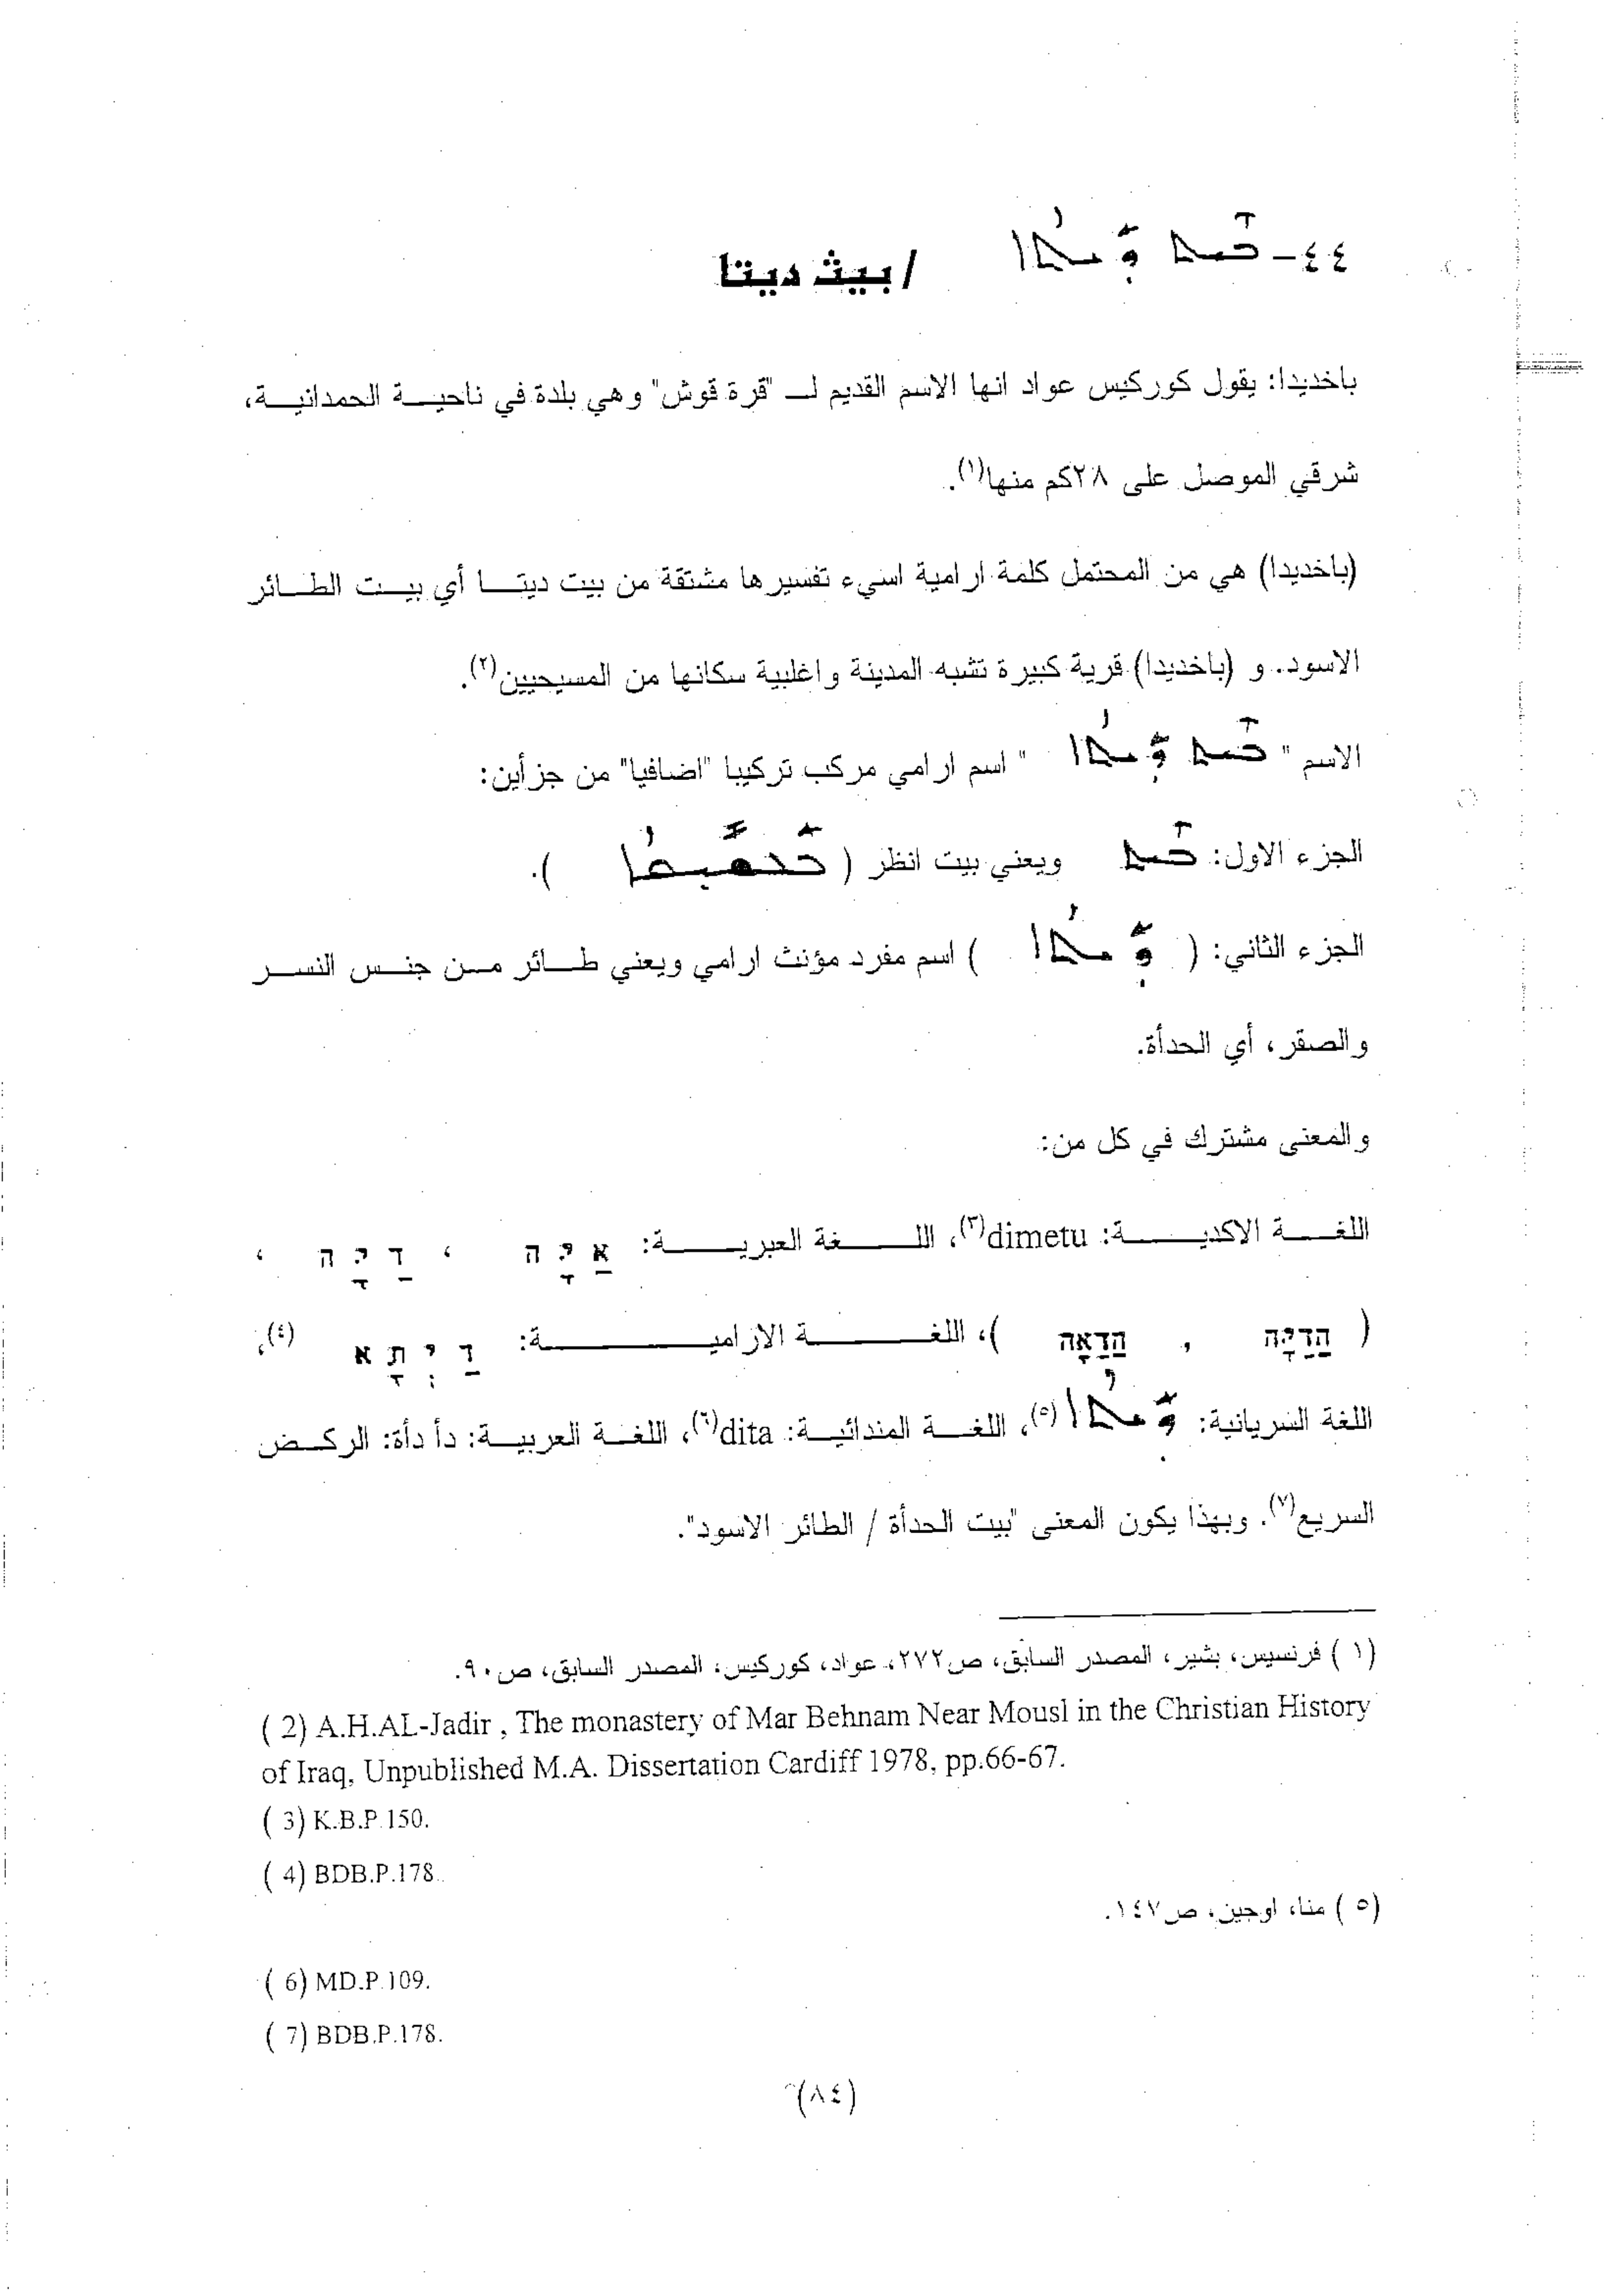 ٤٤- ܒܝܬ ܕܝܬܐ / بيث ديتا
باخديدا: يقول كوركيس عواد انها الاسم القديم لـ "قرة قوش" وهي بلدة في ناحية الحمدانية،
شرقي الموصل على ٢٨كم منها(١).
(باخديدا) هي من المحتمل كلمة ارامية اسيء تفسيرها مشتقة من بيت ديتا أي بيت الطائر
الاسود. و (باخديدا) قرية كبيرة تشبه المدينة واغلبية سكانها من المسيحيين(٢).
الاسم " ܒܝܬ ܕܝܬܐ " اسم ارامي مركب تركيبا "اضافيا" من جزأين:
الجزء الاول: ܒܝܬ ويعني بيت انظر ( ).
الجزء الثاني: ( ܕܝܬܐ ) اسم مفرد مؤنث ارامي ويعني طائر من جنس النسر
والصقر، أي الحدأة.
والمعنى مشترك في كل من:
اللغة الاكدية: dimetu(٣)، اللغة العبرية: אַיָּה ، דַיָּה ،
( הַדַּיָּה , הַדָּאָה )، اللغة الارامية: דַיְתָּא (٤)،
اللغة السريانية: ܕܝܬܐ(٥)، اللغة المندائية: dita(٦)، اللغة العربية: دأ دأة: الركض
السريع(٧). وبهذا يكون المعنى "بيت الحدأة / الطائر الاسود".
(١ ) فرنسيس، بشير، المصدر السابق، ص٢٧٢، عواد، كوركيس، المصدر السابق، ص٩٠.
( 2) A.H.AL-Jadir , The monastery of Mar Behnam Near Mousl in the Christian History
of Iraq, Unpublished M.A. Dissertation Cardiff 1978, pp.66-67.
( 3) K.B.P.150.
( 4) BDB.P.178.
(٥ ) منا، اوجين، ص١٤٧.
( 6) MD.P.109.
( 7) BDB.P.178.
(٨٤)